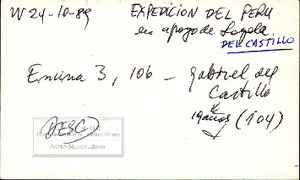 W 24-10-89 EXPEDICION DEL PERU
en apoyo de Loyola
DEL CASTILLO
Encina 3, 106 - Gabriel del
Castillo
(104)
(DESC)